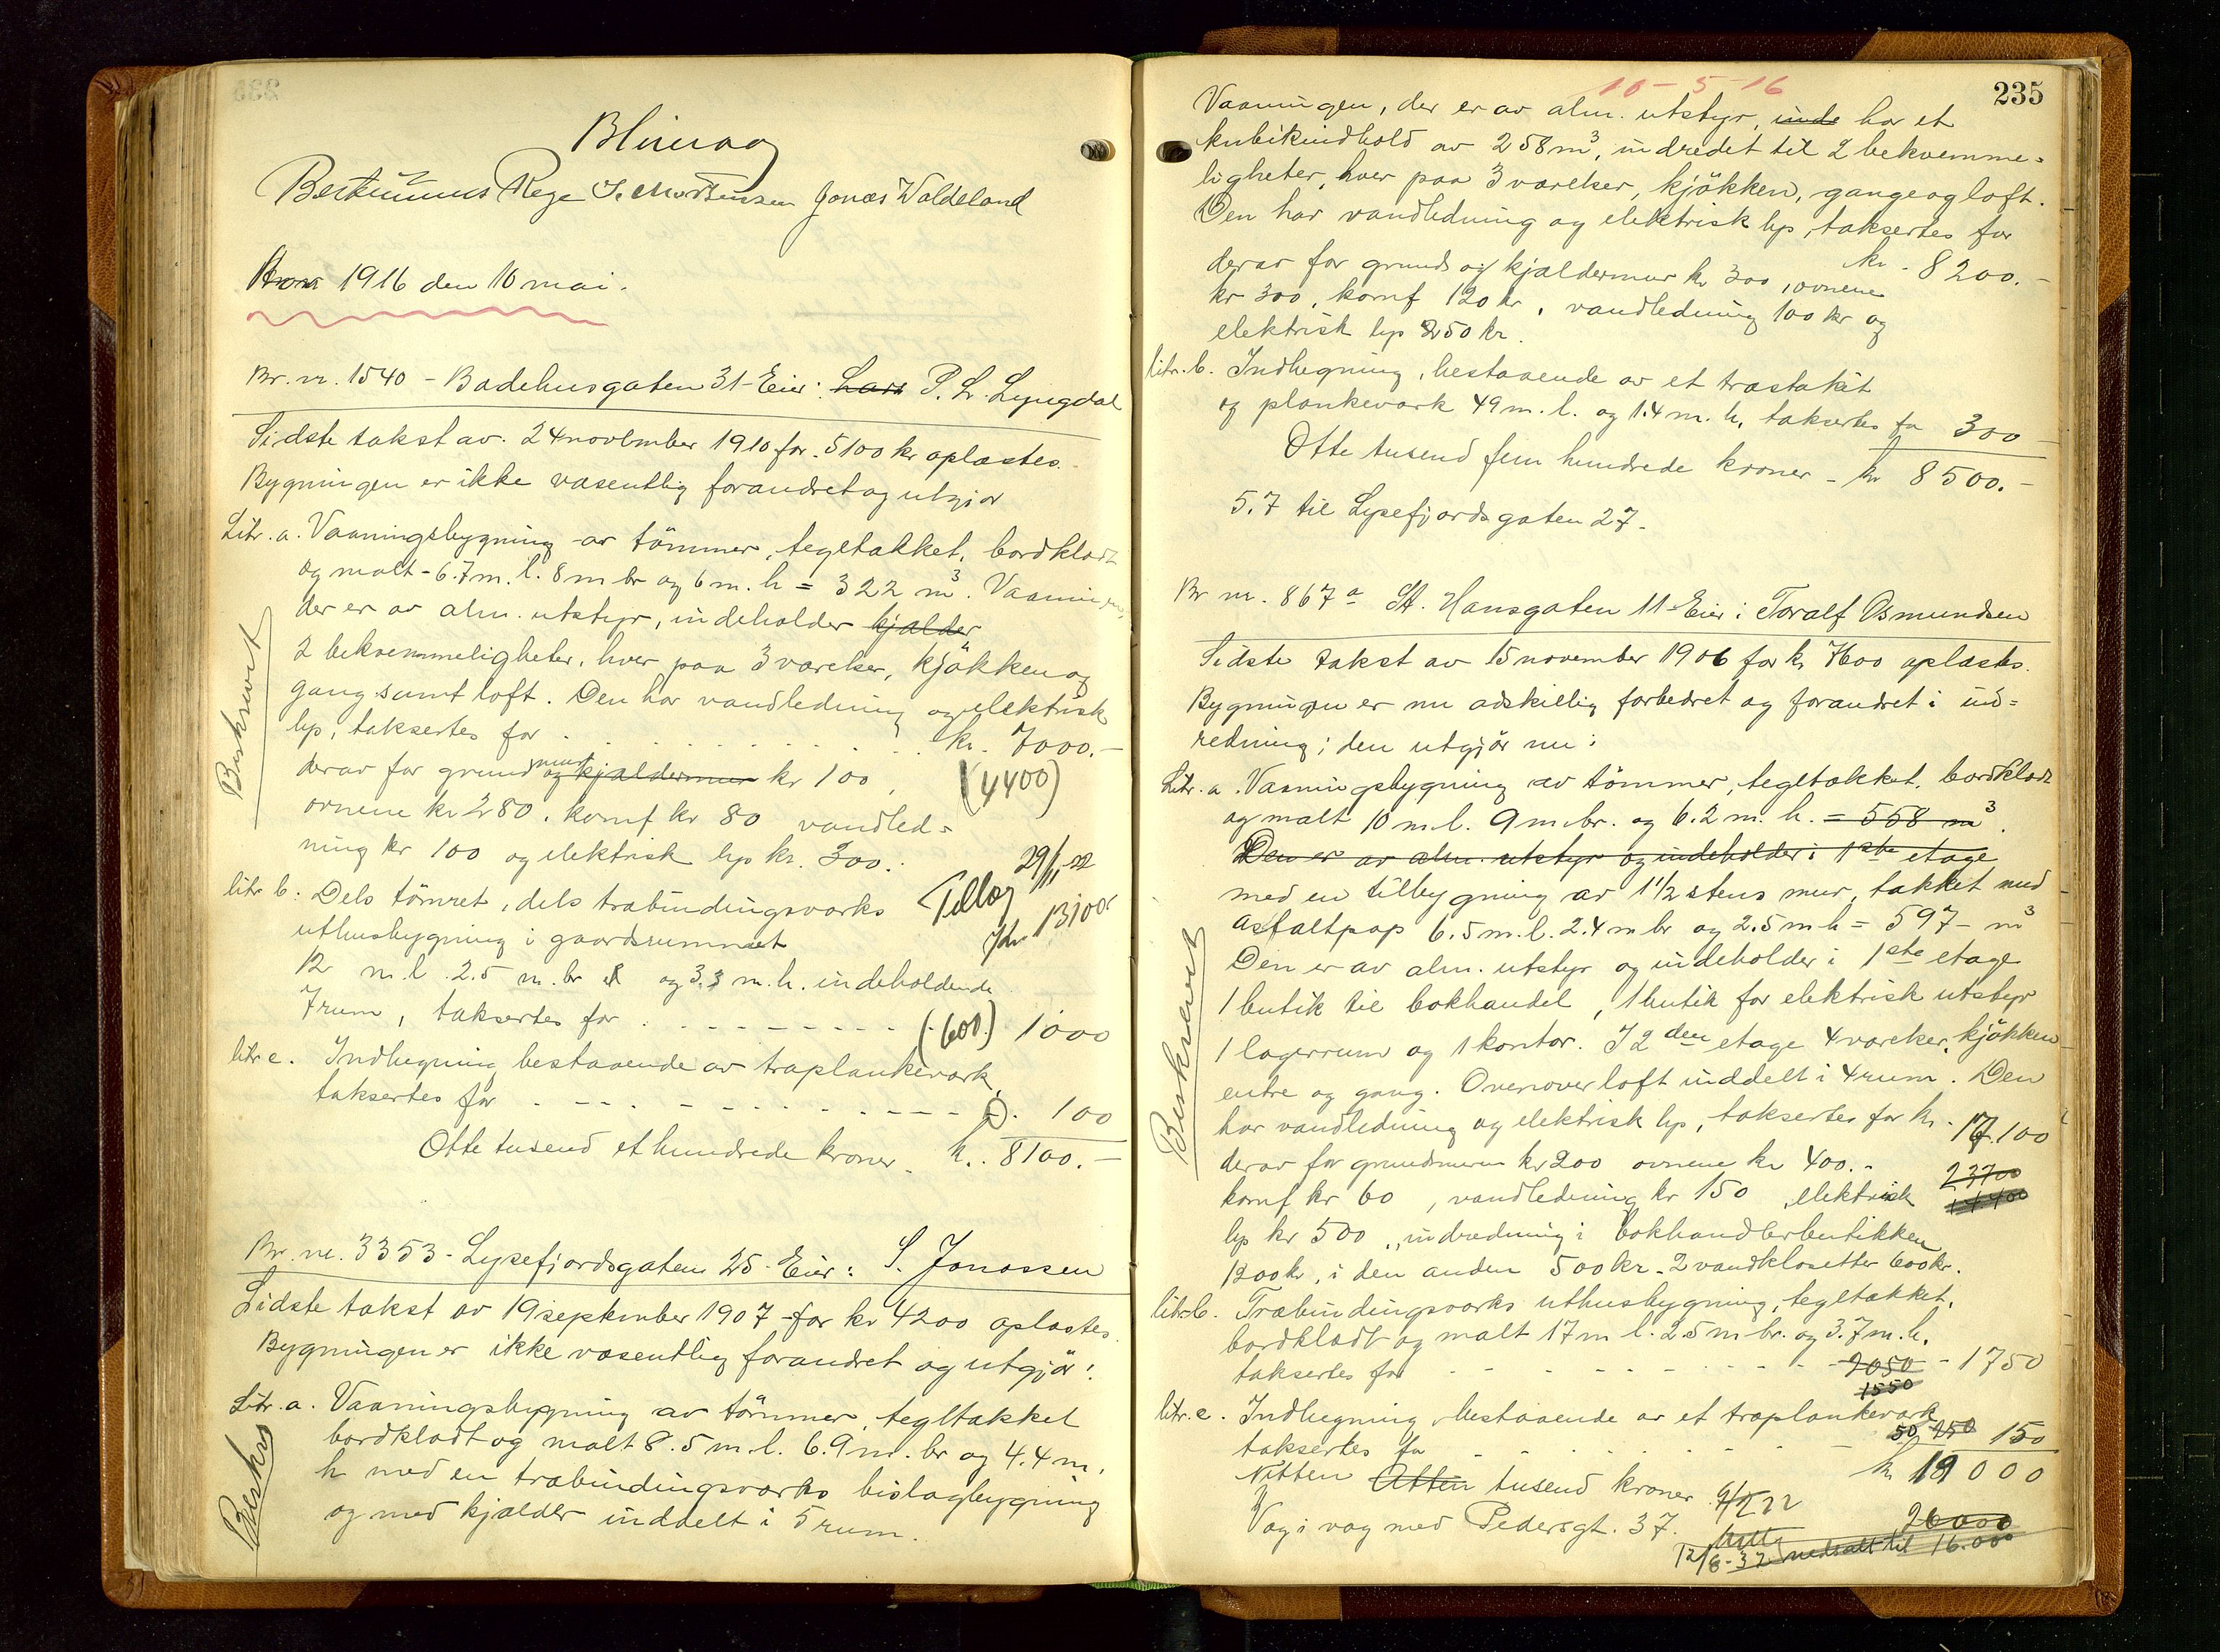 Rege S. Mortensen Jonas Waldeland
1916 den 10 mai.
Br. nr. 1540 - Badehusgaten 31 - Eier: Lars P. L. Lyngdal
Sidste takst av 24 november 1910 for 5100 kr oplæstes.
Bygningen er ikke væsentlig forandret og utgjør
Litr. a. Vaaningsbygning av tömmer, tegltækket, bordklædt
og malt - 6.7 m. l. 8 m br og 6 m. h = 322 m³. Vaaningen,
der er av alm. utstyr, indeholder kjælder
2 bekvemmeligheter, hver paa 3 værelser, kjökken og
gang samt loft. Den har vandledning og elektrisk
lys, taksertes for . . . kr. 7000.-
derav for grundmur og kjældermur kr 100, (4400)
ovnene kr 280, komf kr 80 vandled-
ning kr 100 og elektrisk lys kr. 300.-
29/11-22
litr b: Dels tömret, dels træbindingsværks Tillæg
uthusbygning i gaardsrummet Kr 13100
12 m. l. 2.5 m. br og 3.3 m. h. indeholdende
7 rum, taksertes for . - - - - (600.) 1000
litr c. Indhegning bestaaende av træplankeværk,
taksertes for . - - - - 100
Otte tusend et hundrede kroner - kr. 8100.-
Beskrevet
Br. nr. 3353 - Lysefjordsgaten 25 - Eier: S. Jonassen
Sidste takst av 19 september 1907 for kr 4200 oplæstes.
Bygningen er ikke væsentlig forandret og utgjör:
Litr. a. Vaaningsbygning av tömmer, tegltækket
bordklædt og malt 8.5 m. l. 6.9 m. br og 4.4 m.
h med en træbindingsværks bislagbygning
og med kjælder inddelt i 5 rum.
Beskrev
10-5-16
235
Vaaningen, der er av alm. utstyr, inde har et
kubikindhold av 258 m³, indredet til 2 bekvemme-
ligheter, hver paa 3 værelser, kjökken, gange og loft.
Den har vandledning og elektrisk lys, taksertes for
kr. 8200.-
derav for grund og kjældermur kr 300, ovnene
kr 300, komf 120 kr, vandledning 100 kr og
elektrisk lys 250 kr.
litr. b. Indhegning, bestaaende av et træstakit
og plankeværk 49 m. l. og 1.4 m. h, taksertes for 300 -
Otte tusend fem hundrede kroner - kr 8500.-
5.7 til Lysefjordsgaten 27 -
Br nr. 867 a St. Hansgaten 11 - Eier: Toralf Osmundsen
Sidste takst av 15 november 1906 for kr 7600 oplæstes.
Bygningen er nu adskillig forbedret og forandret i ind-
redning; den utgjör nu:
Litr. a. Vaaningsbygning av tömmer, tegltækket, bordklædt
og malt 10 m. l. 9 m. br. og 6.2 m. h. = 558 m³.
Den er av alm. utstyr og indeholder i 1ste etage
med en tilbygning av 1 1/2 stens mur, tækket med
asfaltpap 6.5 m. l. 2.4 m br og 2.5 m h = 597 - m³
Den er av alm. utstyr og indeholder i 1ste etage
1 butik til bokhandel, 1 butik for elektrisk utstyr
1 lagerrum og 1 kontor. I 2den etage 4 værelser, kjökken
entre og gang. Ovenover loft inddelt i 4 rum. Den
har vandledning og elektrisk lys, taksertes for kr. 17.100
derav for grundmuren kr 200 ovnene kr 400.- 23700
komf kr 60, vandledning kr 150, elektrisk 14400
lys kr 500, indredning i bokhandlerbutikken
1200 kr, i den anden 500 kr - 2 vandklosetter 600 kr.
litr. b. Træbindingsværks uthusbygning, tegltækket,
bordklædt og malt 17 m l. 2.5 m br. og 3.7 m. h.
taksertes for - - - - 2050 - 1750
1550
litr. c. Indhegning, bestaaende av et træplankeværk
taksertes for - - - 50 250 150
Nitten Atten tusend kroner kr 19000
Væg i væg med Pedersgt. 37. 26000
12/8-32 nedsatt til 16.000
Beskrevet